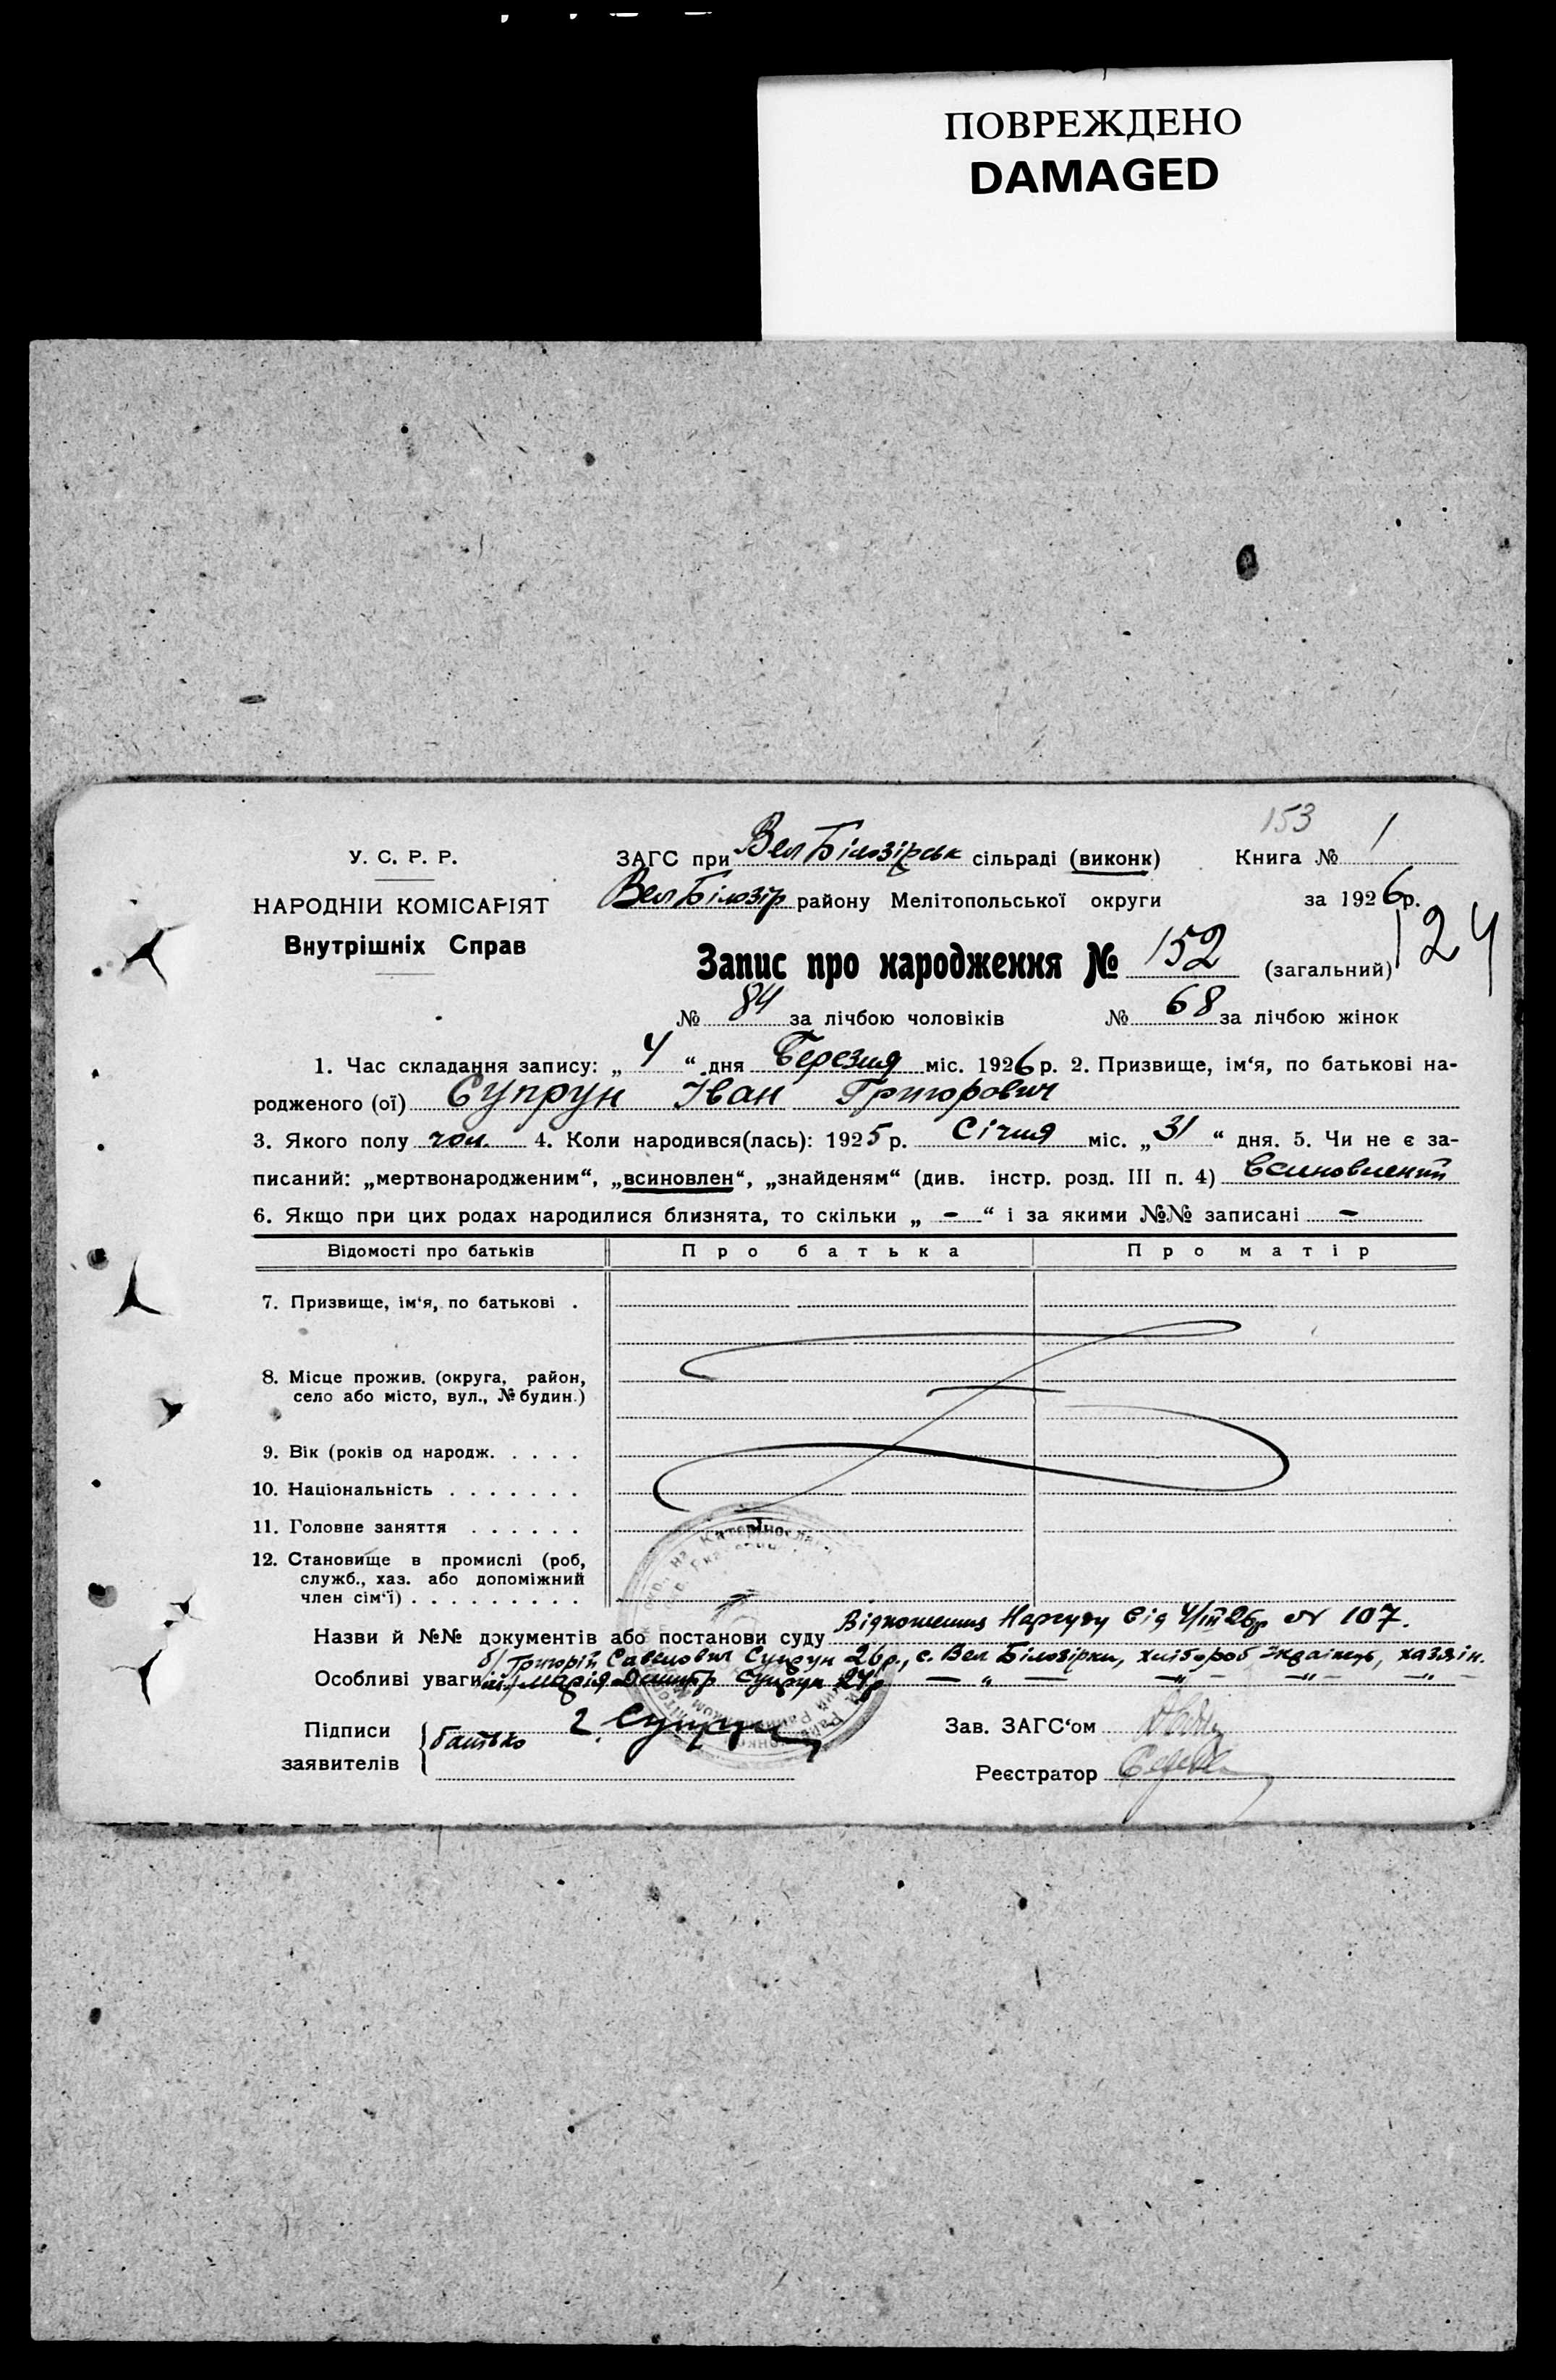 ПОВРЕЖДЕНО
DAMAGED
153
У. С. Р. Р.
ЗАГС при Вел Білозірськ сільраді (виконк) Книга № 1
НАРОДНІЙ КОМІСАРІЯТ
Вел Білозір району Мелітопольської округи за 1926р.
Внутрішніх Справ
124
Запис про народження № 152 (загальний)
№ 84 за лічбою чоловіків № 68 за лічбою жінок
1. Час складання запису: „4“ дня Березня міс. 1926 р. 2. Призвище, ім‘я, по батькові на-
родженого (ої) Супрун Іван Григорович
3. Якого полу чол. 4. Коли народився(лась): 1925 р. Січня міс. „31“ дня. 5. Чи не є за-
писаний: „мертвонародженим“, „всиновлен“, „знайденям“ (див. інстр. розд. III п. 4) Всиновлений
6. Якщо при цих родах народилися близнята, то скільки „ - “ і за якими №№ записані -
Відомості про батьків Про батька Про матір
7. Призвище, ім‘я, по батькові .
8. Місце прожив. (округа, район,
село або місто, вул., № будин.)
9. Вік (років од народж. . . . .
10. Національність . . . . . . .
11. Головне заняття . . . . . .
12. Становище в промислі (роб,
служб., хаз. або допоміжний
член сім‘ї) . . . . . . . . .
Назви й №№ документів або постанови суду Відношення Нарсуду від 4/III 26р № 107.
б/ Григорій Савелович Супрун 26 р., с. Вел Білозірки, хлібороб українець, хазяін.
Особливі уваги м/ Марія Дмитр Супрун 24р — „ — — „ — — „ — — „ —
Підписи
заявителів
батько Г. Супрун
Зав. ЗАГС‘ом
Реєстратор